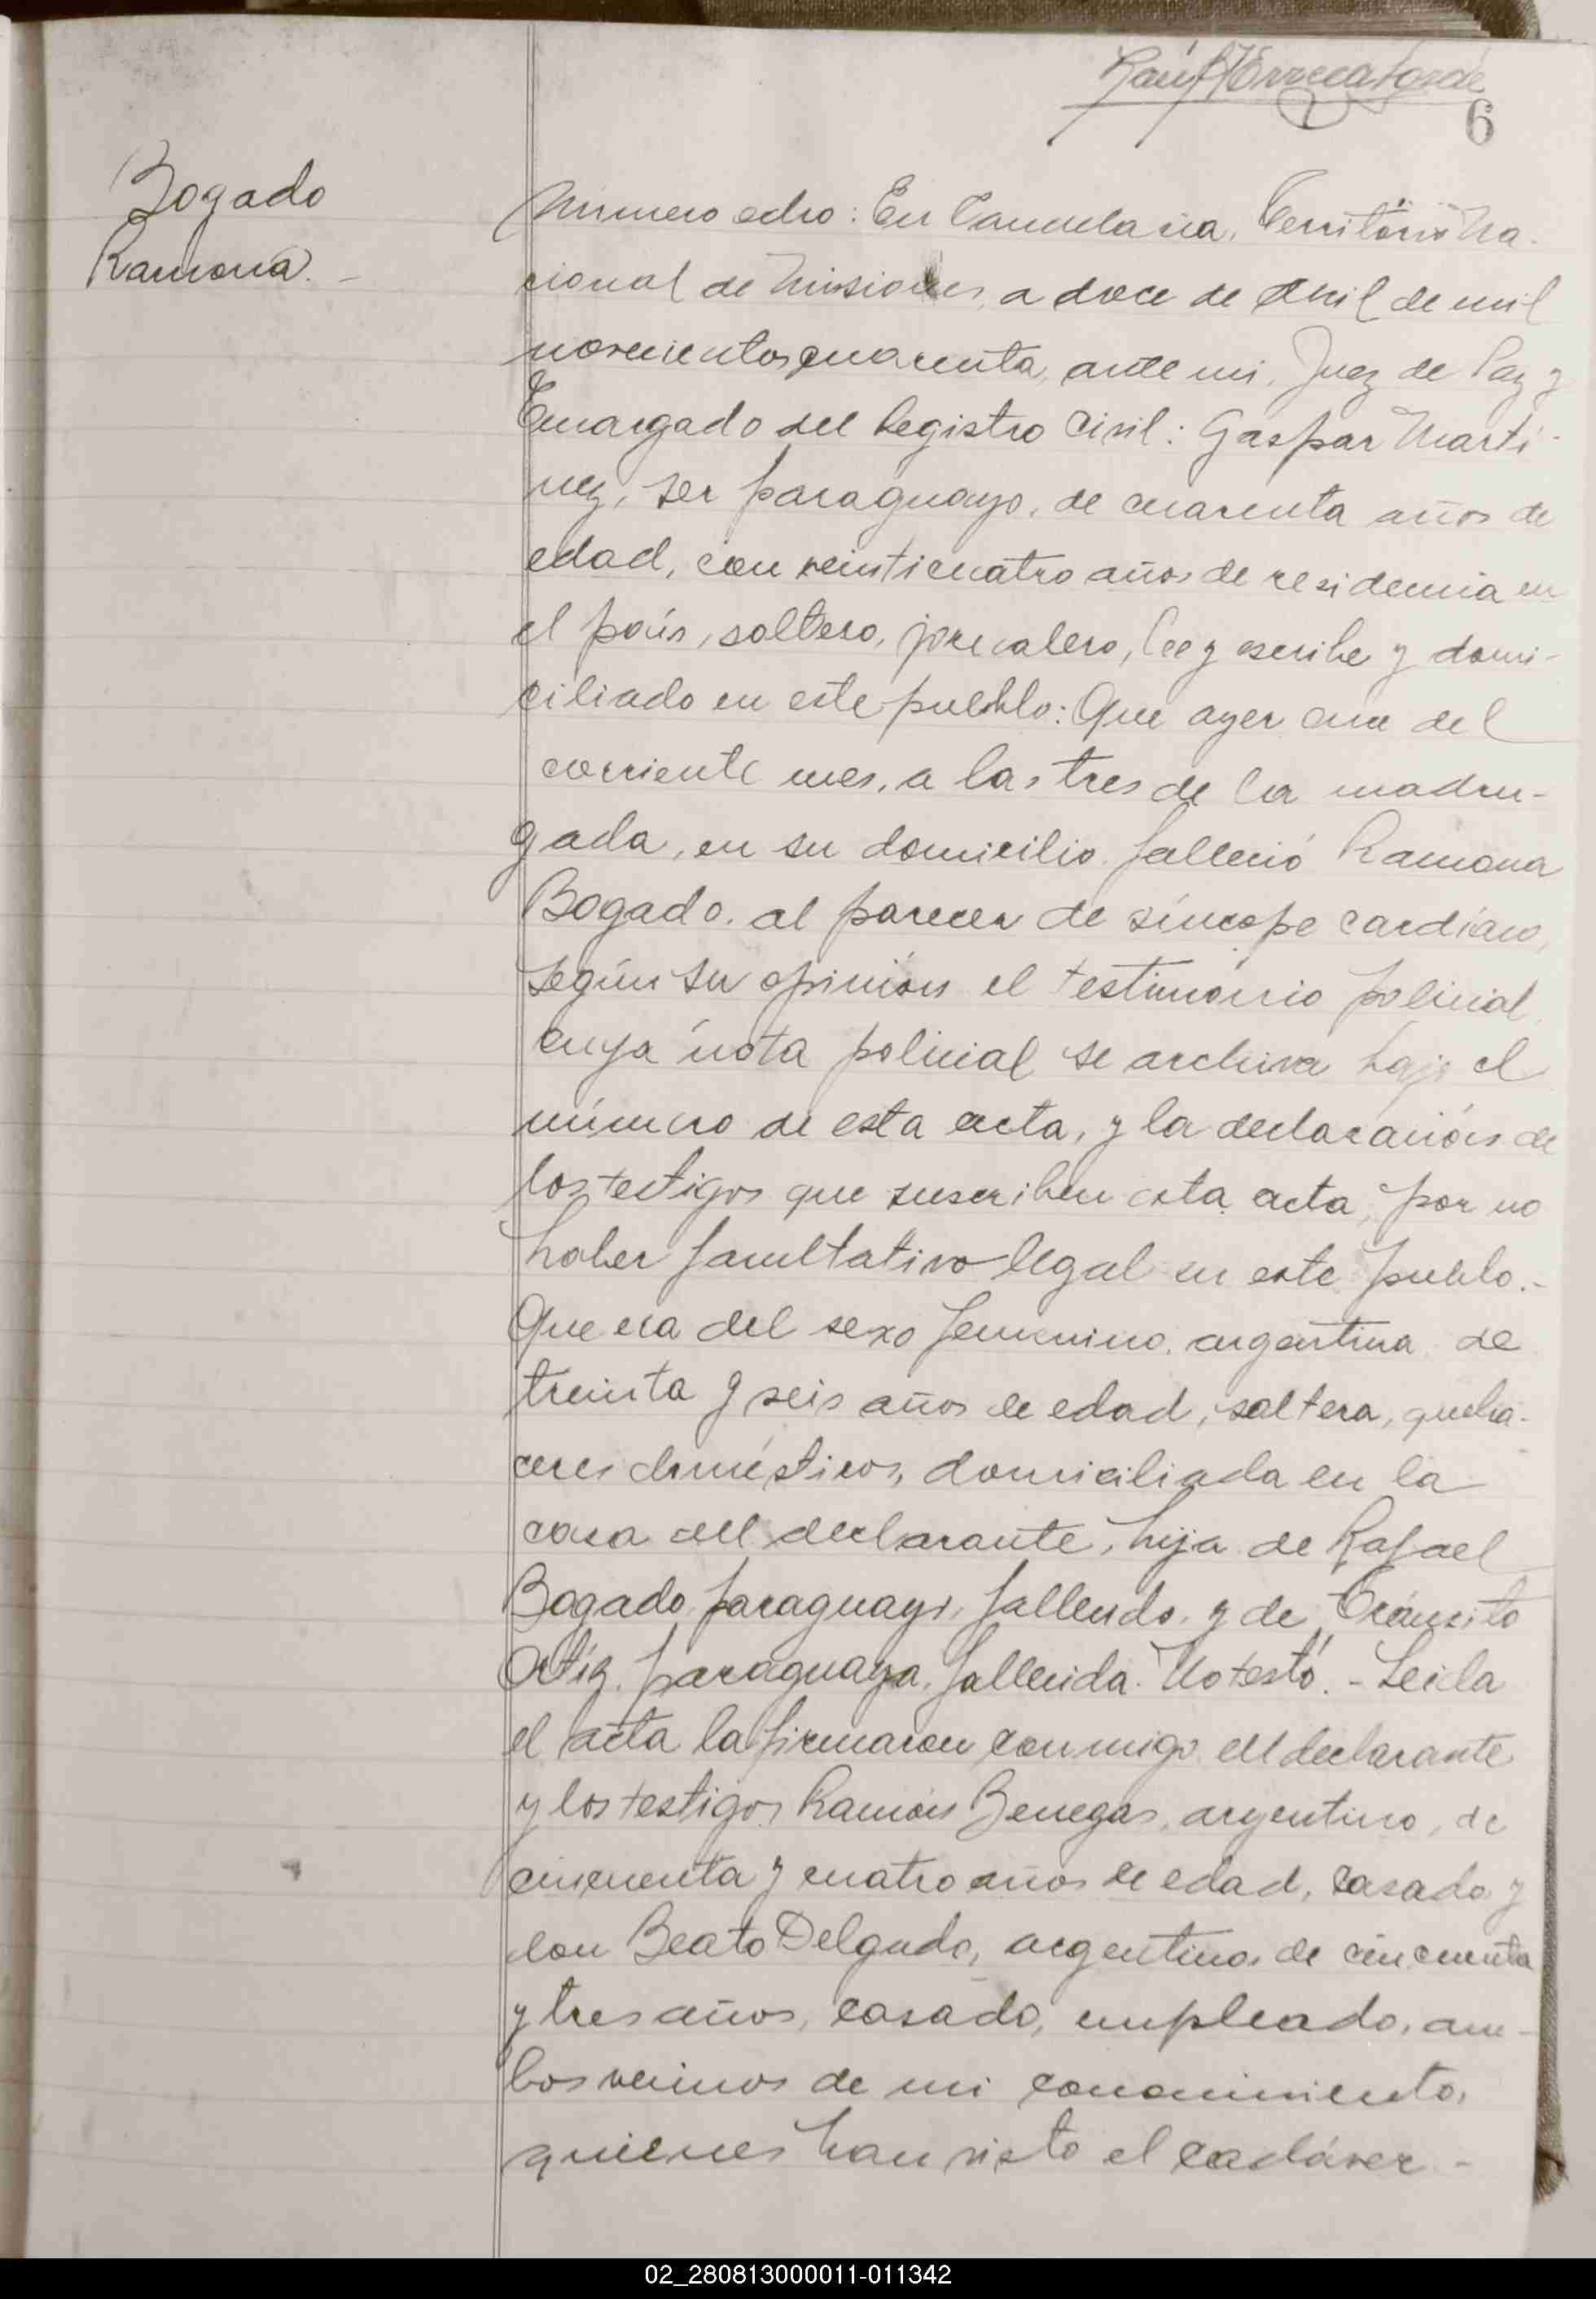 6
Bogado
Ramona. -
Número ocho: En Candelaria, Territorio Na-
cional de Misiones, a doce de Abril de mil
novecientos cuarenta, ante mi, Juez de Paz y
Encargado del Registro Civil: Gaspar Marti-
nez, ser paraguayo, de cuarenta años de
edad, con veinticuatro años de residencia en
el país, soltero, jornalero, lee y escribe y domi-
ciliado en este pueblo: Que ayer once del
corriente mes, a las tres de la madru-
gada, en su domicilio falleció Ramona
Bogado, al parecer de síncope cardíaco,
según su opinión el testimonio policial,
cuya nota policial se archiva bajo el
número de esta acta, y la declaración de
los testigos que suscriben esta acta, por no
haber facultativo legal en este pueblo.-
Que era del sexo femenino, argentina, de
treinta y seis años de edad, soltera, queha-
ceres domésticos, domiciliada en la
casa del declarante, hija de Rafael
Bogado, paraguayo, fallecido, y de Tránsito
Ortíz, paraguaya, fallecida. No testó. - Leida
el acta la firmaron conmigo el declarante
y los testigos Ramón Benegas, argentino, de
cincuenta y cuatro años de edad, casado y
don Beato Delgado, argentino, de cincuenta
y tres años, casado, empleado, am-
bos vecinos de mi conocimiento,
quienes han visto el cadáver.-
02_280813000011-011342